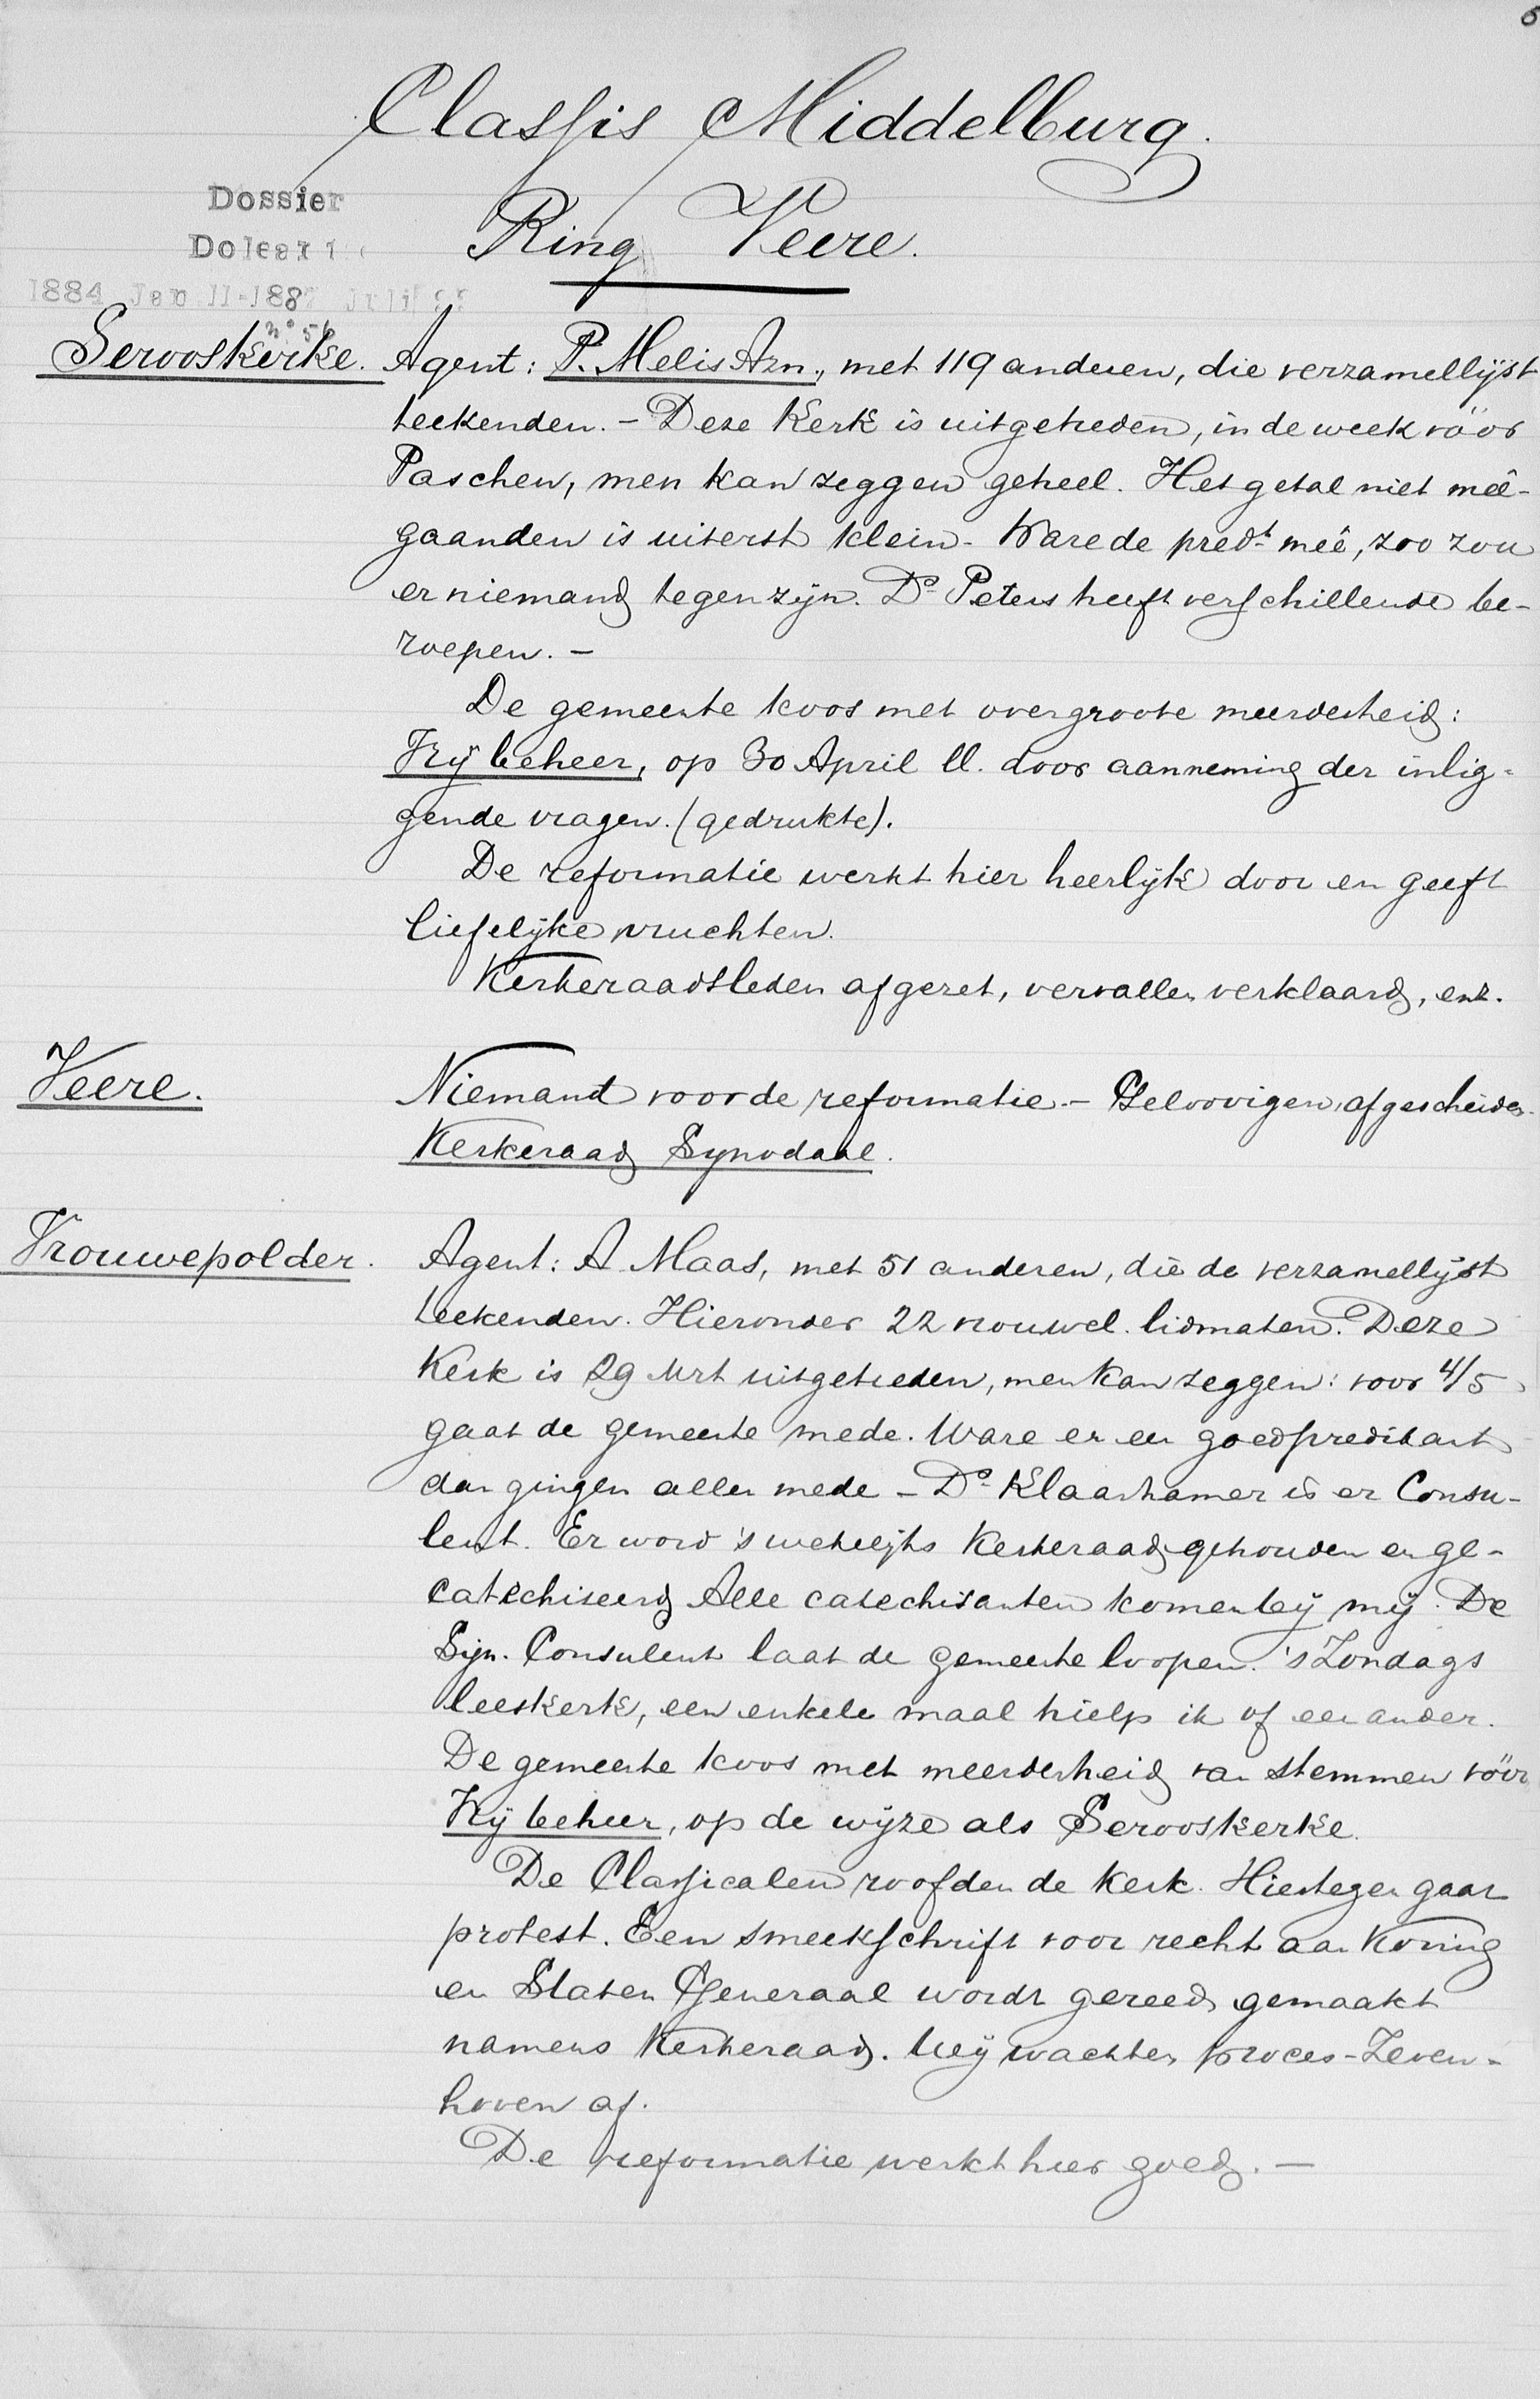 Classis Middelburg.
Dossier
Ring Veere.
Doleantie
1884 Jan 11-1887 Juli
no 56
Serooskerke. Agent: P. Melis Azn., met 119 anderen, die verzamellijst
teekenden. - Deze Kerk is uitgetreden, in de week vóór
Paschen, men kan zeggen geheel. Het getal niet meê-
gaanden is uiterst klein. Ware de predt meê, zoo zou
er niemand tegen zijn. Ds Peters heeft verschillende be-
roepen. -
De gemeente koos met overgroote meerderheid:
Vrij beheer, op 30 April ll. door aanneming der inlig-
gende vragen. (gedrukte).
De reformatie werkt hier heerlijk door en geeft
liefelijke vruchten.
Kerkeraadsleden afgezet, vervallen verklaard, enz.
Veere. Niemand voor de reformatie. - Geloovigen, afgescheiden.
Kerkeraad Synodaal.
Vrouwepolder. Agent: A Maas, met 51 anderen, die de verzamellijst
teekenden. Hieronder 22 vrouwel. lidmaten. Deze
Kerk is 29 Mrt uitgetreden, men kan zeggen: voor 4/5
gaat de gemeente mede. Ware er een goed predikant
dan gingen allen mede - Ds Klaarhamer is er Consu-
lent. Er word 's wekelijks Kerkeraad gehouden en ge-
catechiseerd Alle catechisanten komen bij mij. De
Syn. Consulent laat de gemeente loopen. 's Zondags
leeskerk, een enkele maal hielp ik of een ander.
De gemeente koos met meerderheid van stemmen vóór
Vrij beheer, op de wijze als Serooskerke.
De Classicalen roofden de Kerk. Hiertegen gaat
protest. Een smeekschrift voor recht aan Koning
en Staten Generaal wordt gereed gemaakt
namens Kerkeraad. Wij wachten proces-Zeven-
hoven af.
De reformatie werkt hier goed. -